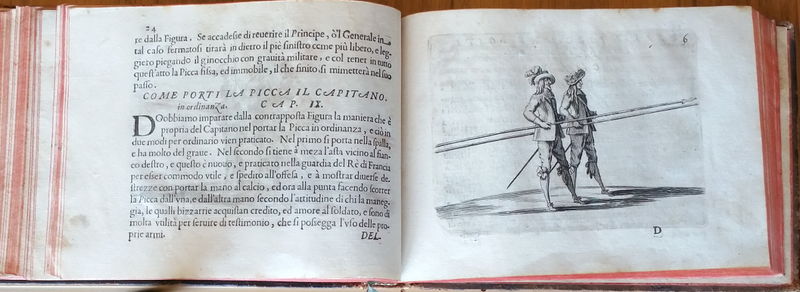 24
re dalla Figura. Se accadesse di reuerire il Principe, ò'l Generale in
tal caso fermatosi tirarà in dietro il piè sinistro come più libero, e leg-
giero piegando il ginocchio con grauità militare, e col tener in tutto
quest'atto la Picca fissa, ed immobile, il che finito si rimetterà nel suo
passo.
COME PORTI LA PICCA IL CAPITANO
in ordinanza. CAP. IX.
DObbiamo imparare dalla contrapposta Figura la maniera che è
propria del Capitano nel portar la Picca in ordinanza, e ciò in
due modi per ordinario vien praticato. Nel primo si porta nella spalla,
e ha molto del graue. Nel secondo si tiene à meza l'asta vicino al fian-
co destro, e questo è nuouo, e praticato nella guardia del Rè di Francia
per esser commodo vtile, e spedito all'offesa, e à mostrar diuerse de-
strezze con portar la mano al calcio, ed ora alla punta facendo scorrer
la Picca dall'vna, e dall'altra mano secondo l'attitudine di chi la maneg-
gia, le quali bizzarrie acquistan credito, ed amore al soldato, e sono di
molta vtilità per seruire di testimonio, che si possegga l'vso delle pro-
prie armi.
DEL-
6
D